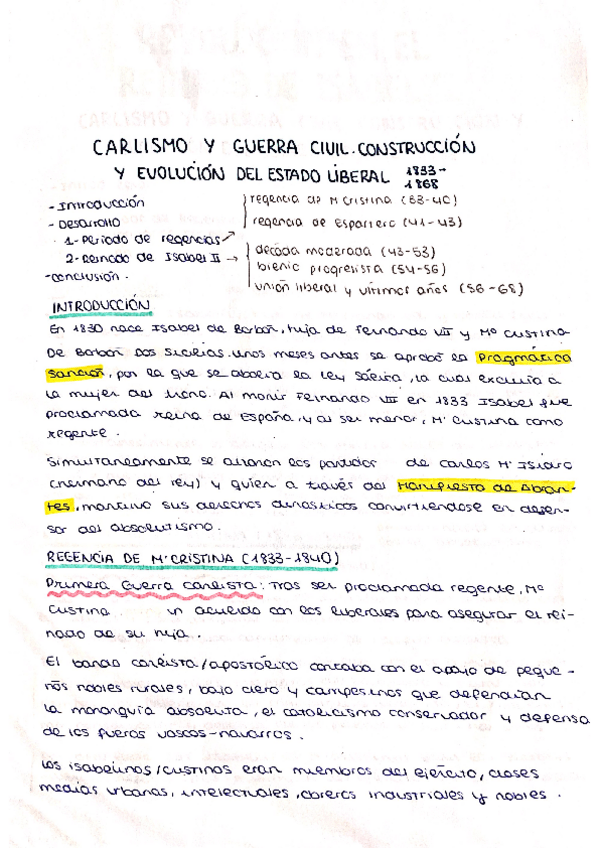 CARLISMO Y GUERRA CIVIL. CONSTRUCCIÓN
Y EVOLUCIÓN DEL ESTADO LIBERAL 1833-
1868
- Introducción
- Desarrollo
1- Periodo de regencias
2- Reinado de Isabel II →
- conclusión.
regencia de Mª Cristina (33-40)
regencia de Espartero (41-43)
década moderada (43-53)
bienio progresista (54-56)
unión liberal y últimos años (56-68)
INTRODUCCIÓN
En 1830 nace Isabel de Borbón, hija de Fernando VII y Mª Cristina
De Borbón Dos Sicilias. Unos meses antes se aprobó la Pragmática
Sanción, por la que se abolía la ley Sálica, la cual excluía a
la mujer del trono. Al morir Fernando VII en 1833 Isabel fue
proclamada reina de España, y al ser menor, Mª Cristina como
regente.
Simultáneamente se alzaron los partidos de Carlos Mª Isidro
(hermano del rey) y quien a través del Manifiesto de Abran-
tes, mantuvo sus derechos dinásticos convirtiéndose en defen-
sor del absolutismo.
REGENCIA DE Mª CRISTINA (1833-1840)
Primera Guerra Carlista: Tras ser proclamada regente, Mª
Cristina un acuerdo con los liberales para asegurar el rei-
nado de su hija.
El bando carlista/apostólico contaba con el apoyo de peque-
ños nobles rurales, bajo clero y campesinos que defendían
la monarquía absoluta, el catolicismo conservador y defensa
de los fueros vascos-navarros.
Los isabelinos/cristinos eran miembros del ejército, clases
medias urbanas, intelectuales, obreros industriales y nobles.